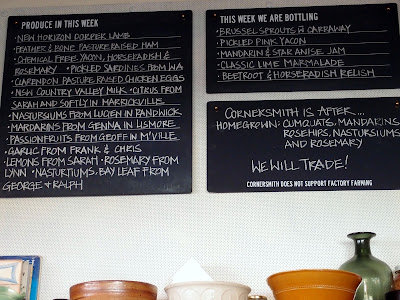 PRODUCE IN THIS WEEK
• NEW HORIZON DORPER LAMB
• FEATHER & BONE PASTURE RAISED HAM
• CHEMICAL FREE YACON, HORSERADISH &
ROSEMARY • PICKLED SARDINES FROM W.A
• CLARENDON PASTURE RAISED CHICKEN EGGS
• NSW COUNTRY VALLEY MILK • CITRUS FROM
SARAH AND SOFTLY IN MARRICKVILLE
• NASTURSIUMS FROM LUCIEN IN RANDWICK
• MARDARINS FROM GENNA IN LISMORE
• PASSIONFRUITS FROM GEOFF IN M'VILLE
• GARLIC FROM FRANK & CHRIS
LEMONS FROM SARAH • ROSEMARY FROM
LYNN • NASTURTIUMS, BAY LEAF FROM
GEORGE & RALPH
THIS WEEK WE ARE BOTTLING
• BRUSSEL SPROUTS W CARRAWAY
• PICKLED PINK YACON
• MANDARIN & STAR ANISE JAM
• CLASSIC LIME MARMALADE
• BEETROOT & HORSERADISH RELISH
CORNERSMITH IS AFTER....
HOMEGROWN: CUMQUATS, MANDARINS
ROSEHIPS, NASTURSIUMS
AND ROSEMARY
WE WILL TRADE!
CORNERSMITH DOES NOT SUPPORT FACTORY FARMING